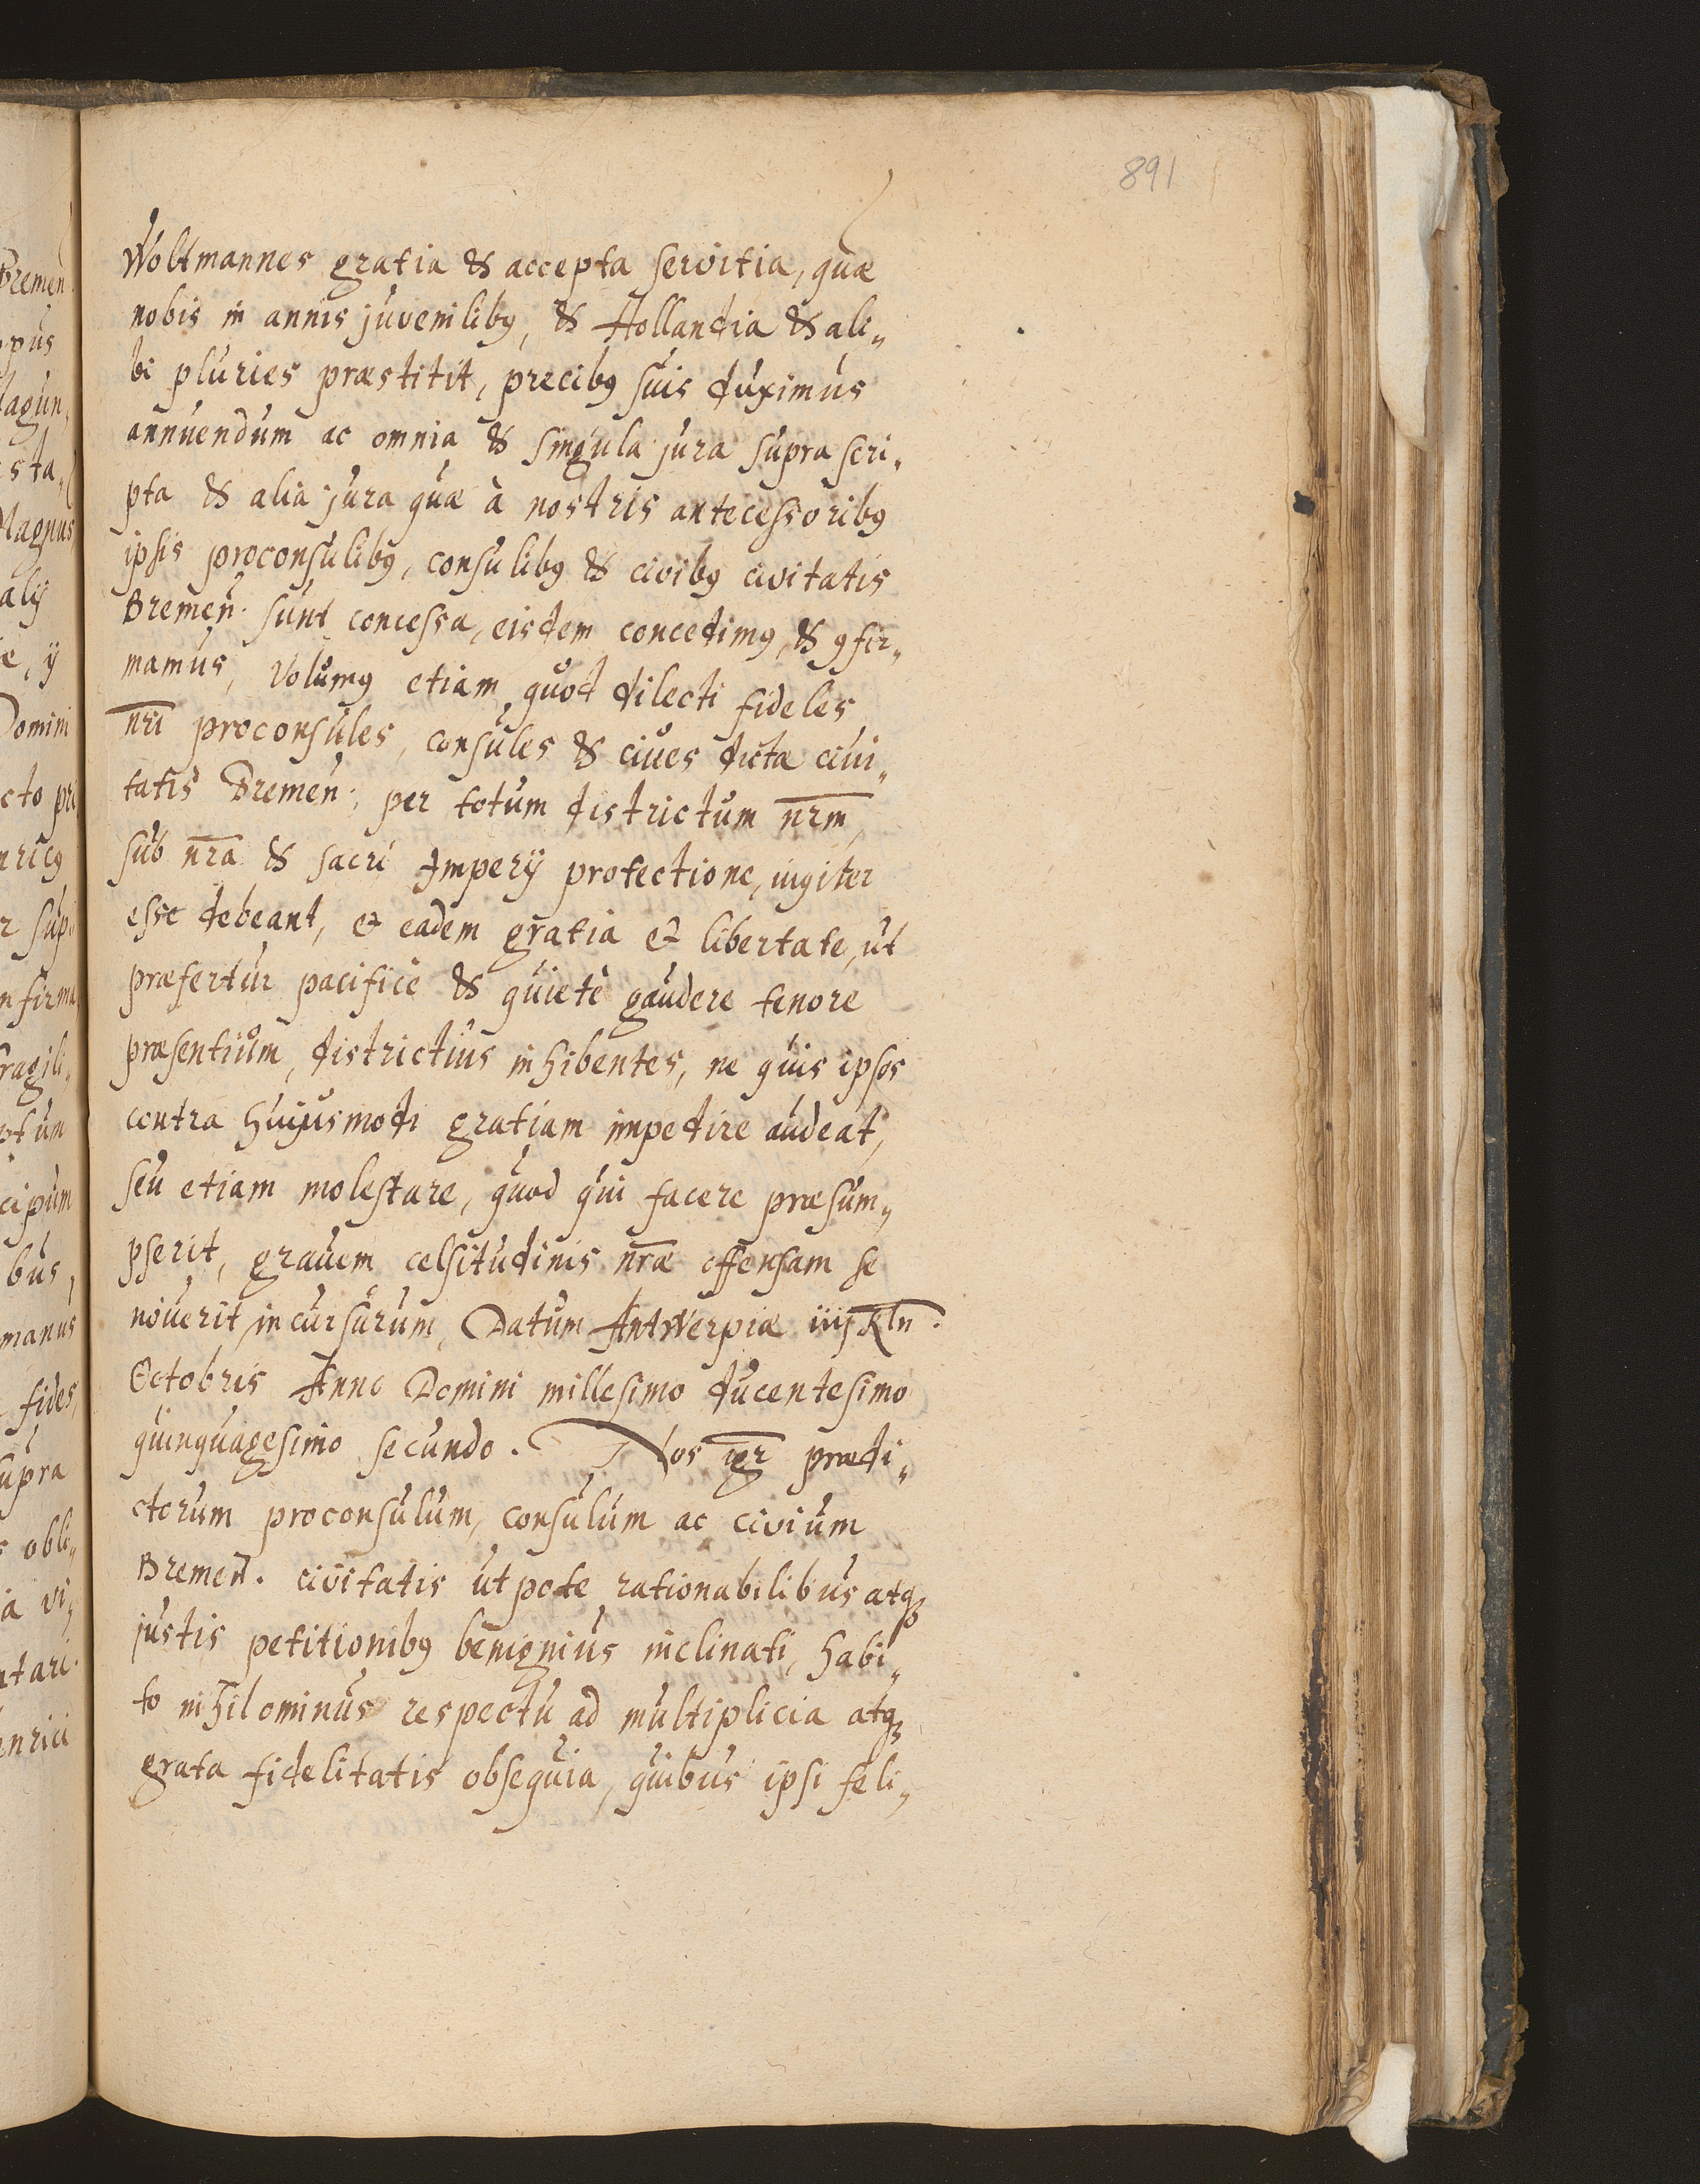 891
Woltmannes gratia & accepta servitia, quæ
nobis in annis juvenilibꝰ, & Hollandia & ali„
bi pluries præstitit, precibꝰ suis duximus
annuendum ac omnia & singula jura supra scri„
pta & alia jura quæ à nostris antecessoribꝰ
ipsis proconsulibꝰ, consulibꝰ & civibꝰ civitatis
Bremen̄. sunt concessa, eisdem concedimꝰ, & ꝯfir„
mamus, Volumꝰ etiam quod dilecti fideles
nr̄i proconsules, consules & ciues dicta ciui„
tatis Bremen̄: per totum districtum nr̄m,
sub nr̄a & sacri Imperÿ protectione, iugiter
esse debeant, et eadem gratia et libertate, ut
præfertur pacificè & quietè gaudere tenore
præsentium, districtius inhibentes, ne quis ipsos
contra hujusmodi gratiam impedire audeat,
seu etiam molestare, quod qui facere præsum„
pserit, grauem celsitudinis nr̄æ offensam se
nouerit incursurum, Datum Antwerpiæ iiij Kln̄.
Octobris Anno Domini millesimo ducentesimo
quinquagesimo secundo. Nos igr̄ prædi„
ctorum proconsulum, consulum ac civium
Bremen̄. civitatis utpote rationabilibus atqꝫ
justis petitionibꝰ benignius inclinati, habi„
to nihilominus respectu ad multiplicia atqꝫ
grata fidelitatis obsequia, quibus ipsi feli„